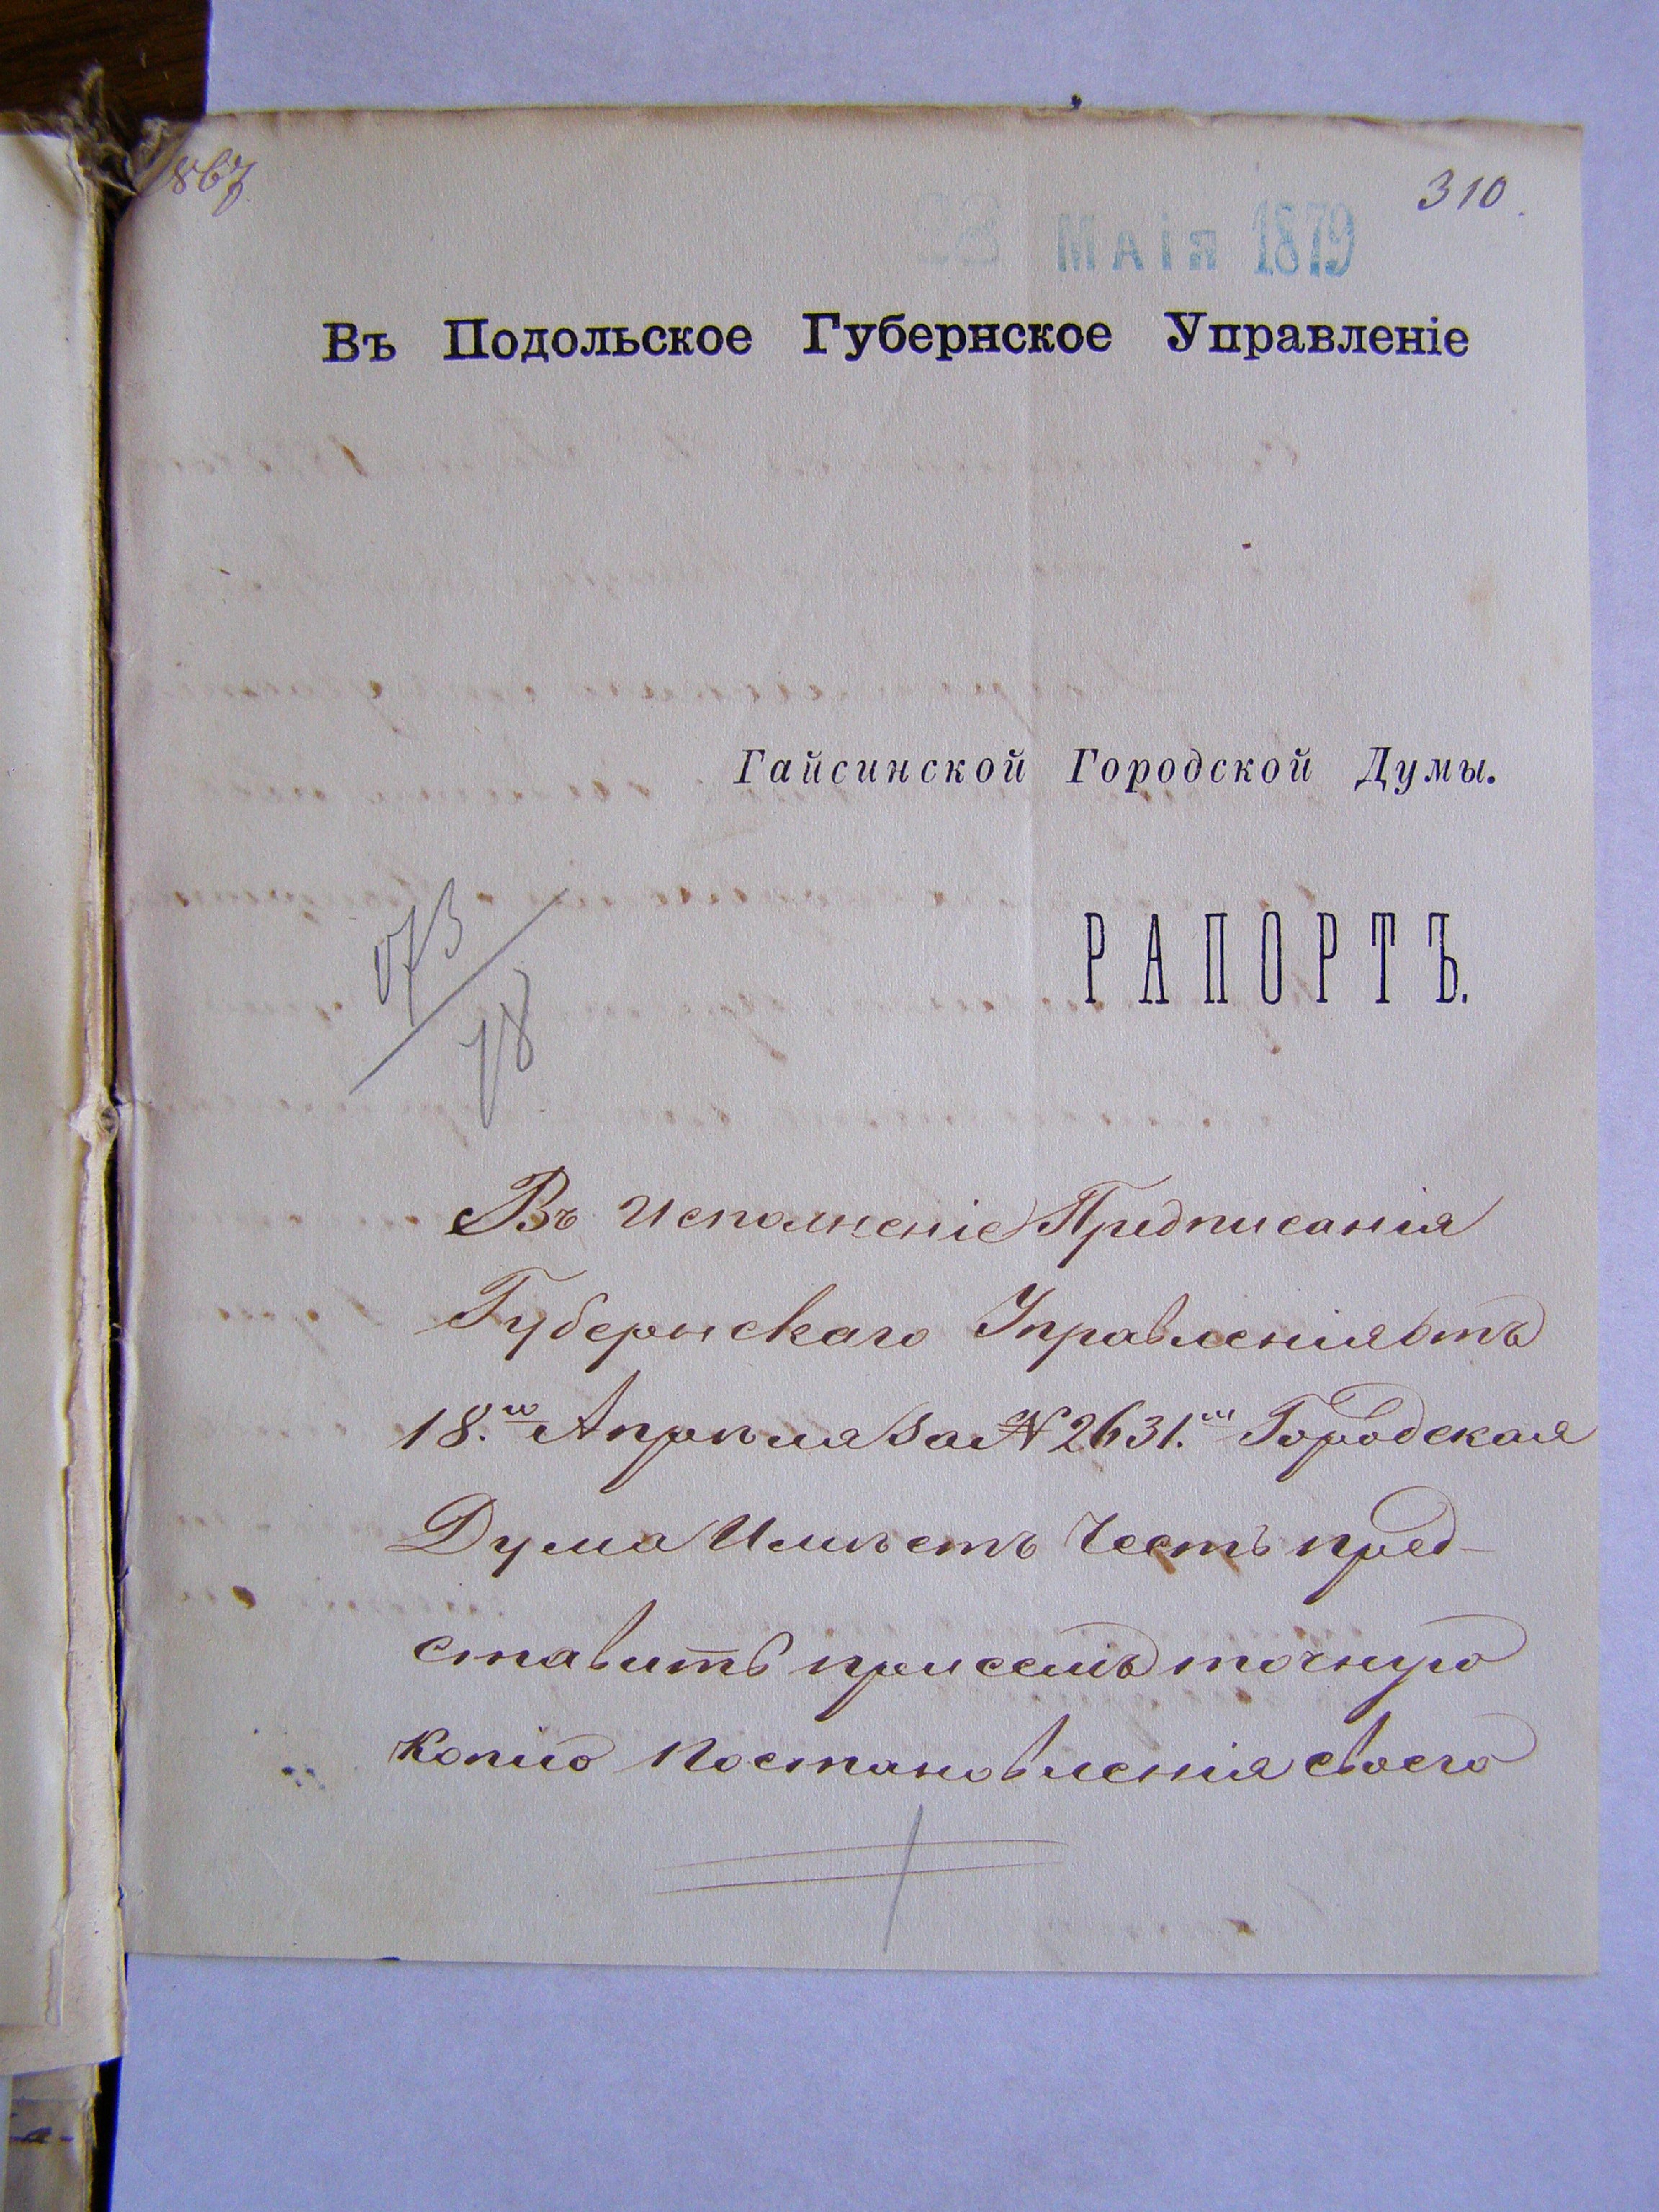 867
310.
Маія 1879
Въ Подольское Губернское Управленіе
Гайсинской Городской Думы.
РАПОРТЪ.
Въ Исполненіе Предписанія
Губернскаго Управленія отъ
18.го Апрѣля за № 2631.ш Городская
Дума Имѣетъ Честь пред-
ставить при семъ точную
Копію Постановленія своего